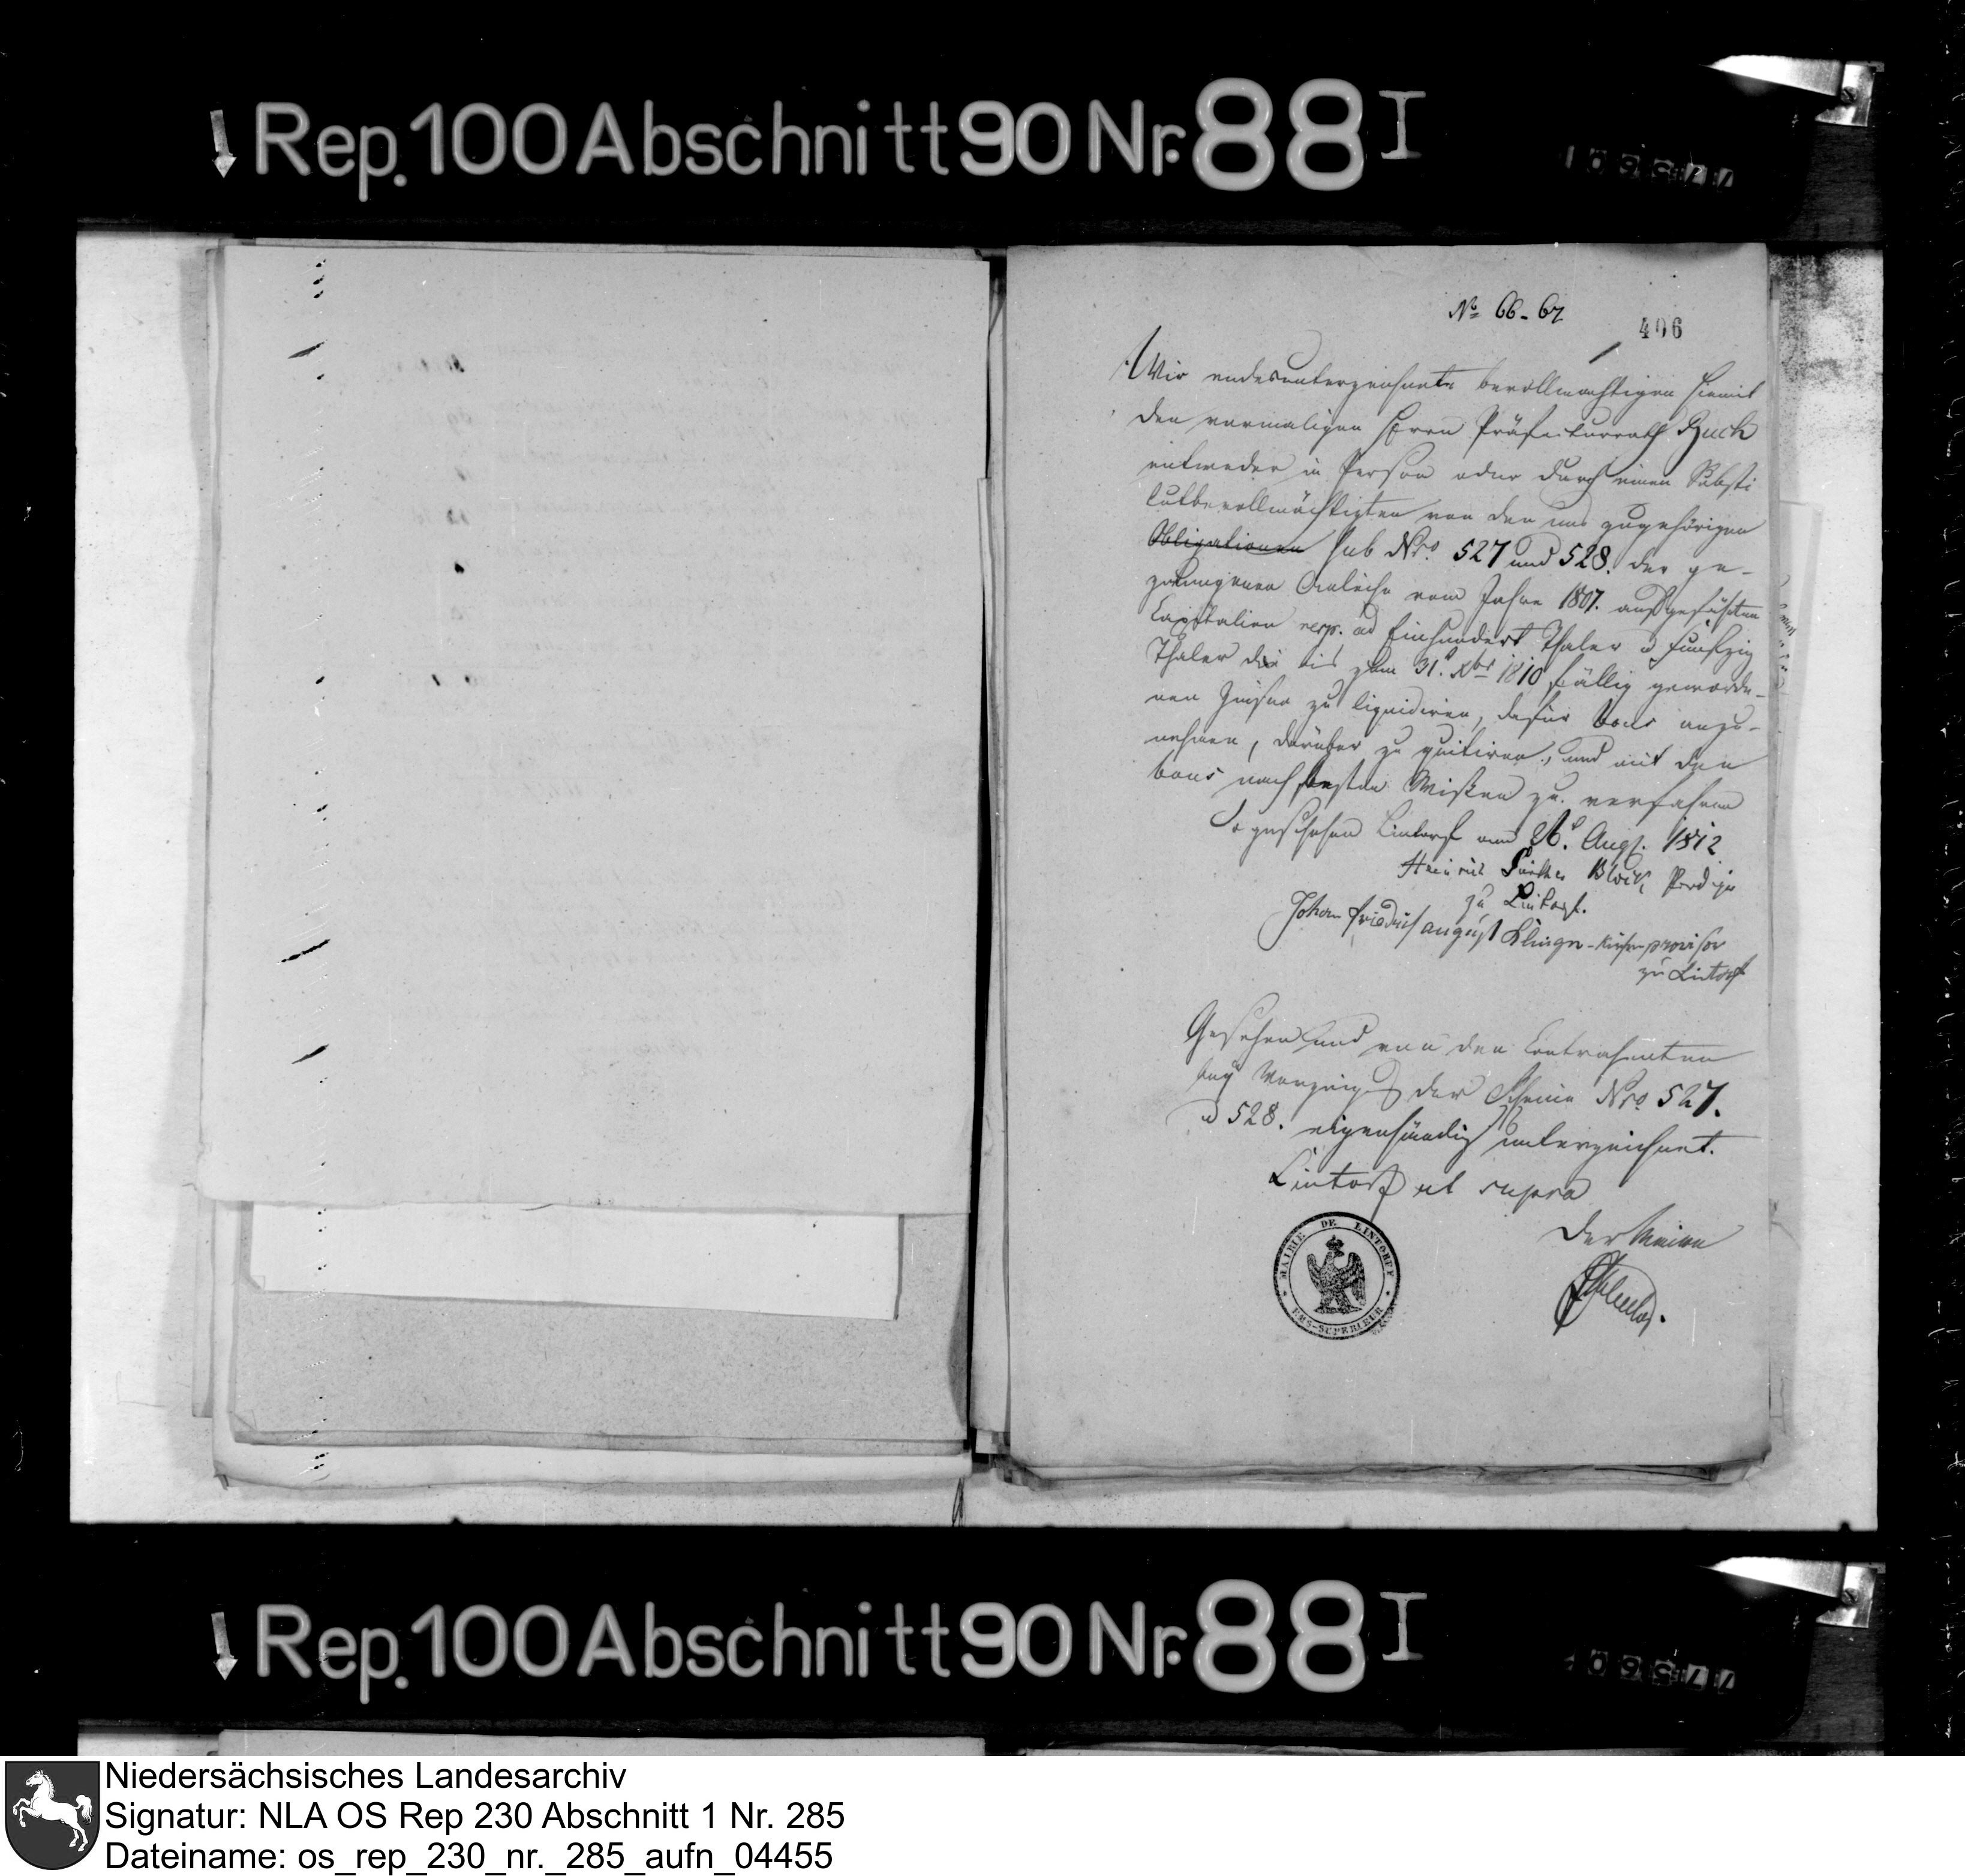 Rep. 100 Abschnitt 90 Nr. 88 I
No 66-67
406
Wir endesunterzeichnete bevollmachtigen hiemit
den vormaligen Herrn Präfecturrath Buch
entweder in Person oder durch einen Substi
tutbevollmächtigten von den uns zugehörigen
Obligationen sub Nro. 527 und 528. der ge-
zwungenen Anleihe vom Jahre 1807. aufgeführten
Capitalien resp. ad Einhundert Thaler u fünfzig
Thaler die bis zum 31. Xbr 1810 fällig geworde-
nen Zinsen zu liquidiren, dafür bons anzu-
nehmen, darüber zu quitiren, und mit den
bons nach besten Wissen zu verfahren
So geschehen Lintorf am 26. Augt. 1812
Heinrich Block Prediger
zu Lintorf.
Johan Friedrich august Klinger - Kirchenprovisor
zu Lintorf
Gesehen und von den Contrahenten
der Scheine Nro 527.
u 528. eigenhändig unterzeichnet.
Lintorf ut supra
MAIRIE DE LINTORFF
EMS-SUPERIEUR
der Maire
Rep. 100 Abschnitt 90 Nr. 88 I
Niedersächsisches Landesarchiv
Signatur: NLA OS Rep 230 Abschnitt 1 Nr. 285
Dateiname: os_rep_230_nr._285_aufn_04455